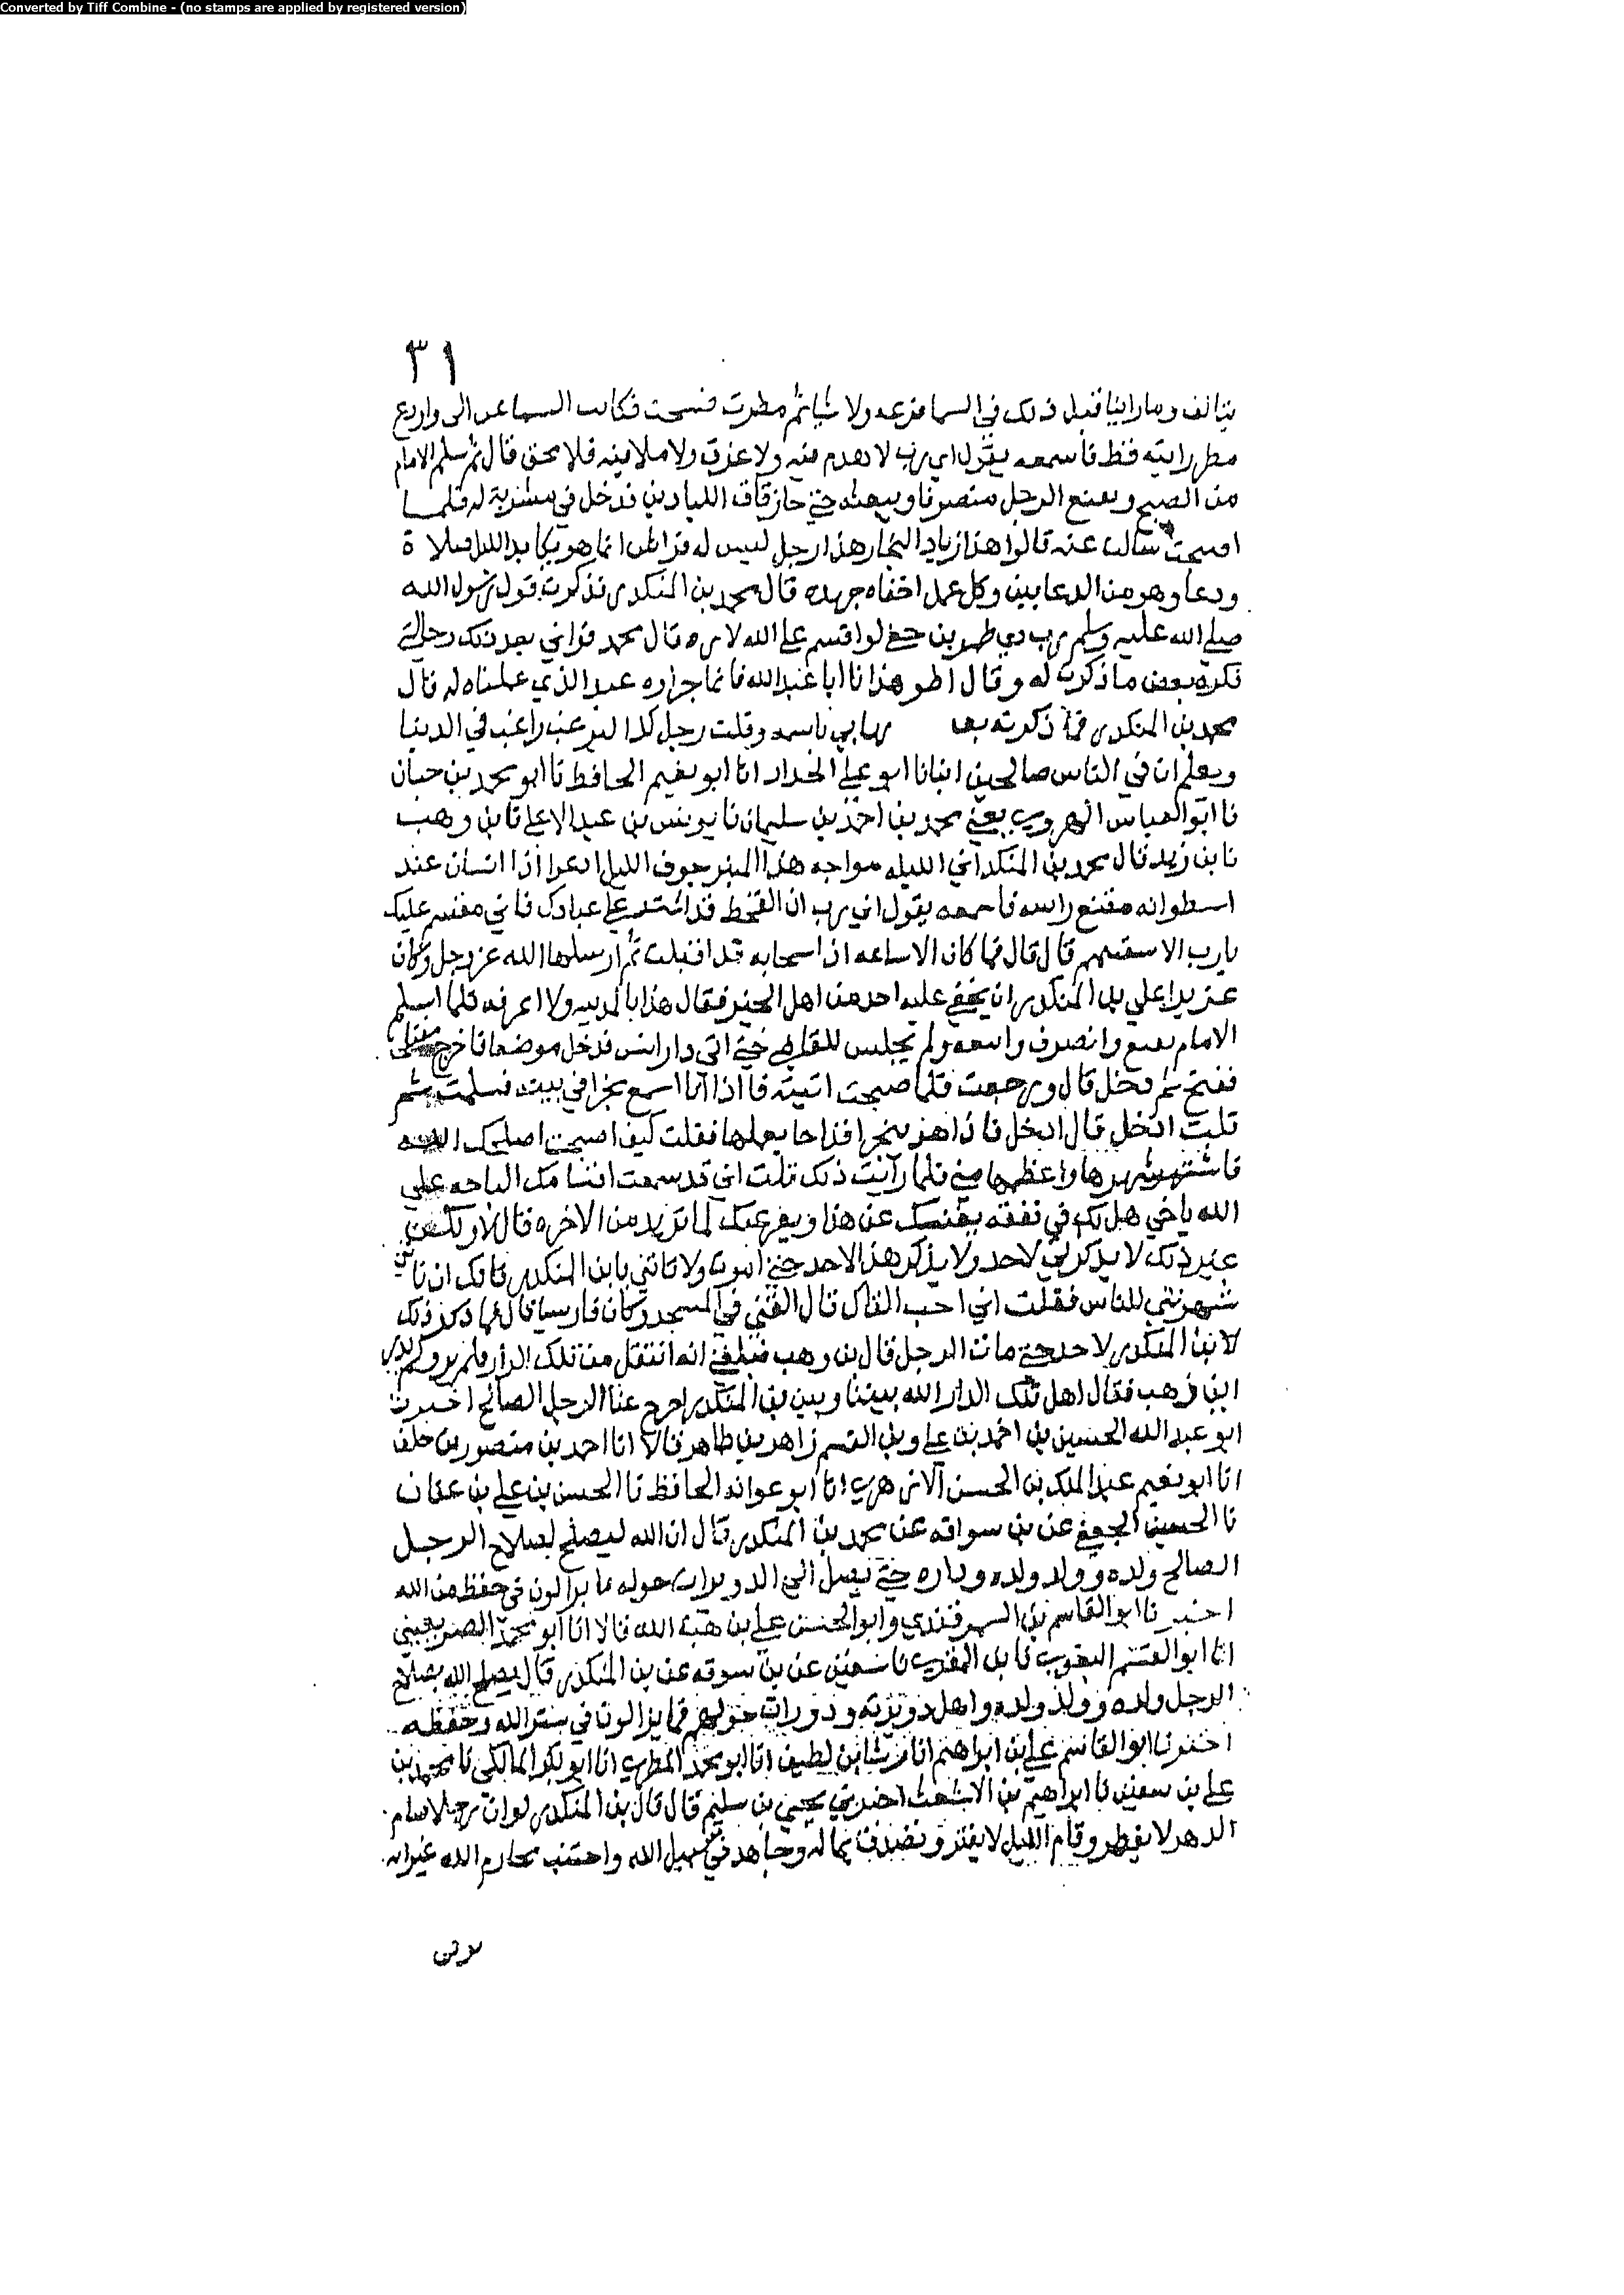 Converted by Tiff Combine - (no stamps are applied by registered version)
٣١
يتالف وما راينا قبل ذلك في السما قزعه ولا شيا ثم مطرت فسحت فكانت السما عزالى واربع
مطر رايته قط فاسمعه يقول اي رب لا هدم فيه ولا غرق ولا بلا فيه ولا محق قال ثم سلم الامام
من الصبح وتقنع الرجل منصرفا وتبعته حتى جا زقاق اللبادين فدخل في مشربة له فلما
اصبحت سالت عنه قالوا هذا زياد النجار هذا رجل ليس له فراش انما هو يكابد الليل صلاة
ودعا وهو من الدعايين وكل عمل اخفاه جهده قال محمد بن المنكدر فذكرت قول رسول الله
صلى الله عليه وسلم رب ذي طمرين خفي لو اقسم على الله لابره قال محمد فراني بعد ذلك رجالتي
نكره بعض ما ذكرت له وقال اطو هذا نا ابا عبد الله فانما جزاوه عند الذي عملناه له قال
محمد بن المنكدر فما ذكرته بعد نهاني باسمه وقلت رجل كذا ليرغب راغب في الدنيا
ويعلم ان في الناس صالحين انبانا ابو علي الحداد انا ابو نعيم الحافظ نا ابو محمد بن حيان
نا ابو العباس الهروي يعني محمد بن احمد بن سليمان نا يونس بن عبد الاعلى نا بن وهب
نا بن زيد قال محمد بن المنكدر اني الليله مواجه هذا المنبر جوف الليل ادعوا اذا انسان عند
اسطوانه مقنع راسه فاسمعه يقول اي رب ان القحط قد اشتد على عبادك فاني مقسم عليك
يارب الا سقيتهم قال قال فما كان الا ساعه اذا سحابه قد اقبلت ثم ارسلها الله عز وجل وكان
عزيزا على بن المنكدر ان يخفى عليه احد من اهل الخير فقال هذا بالمدينه ولا اعرفه فلما سلم
الامام تقنع وانصرف واتبعه ولم يجلس للقاص حتى اتى دار انس فدخل موضعا فاخرج مفتاحا
ففتح ثم دخل قال ورجعت فلما صبحت اتيته فاذا انا اسمع نجرا في بيته فسلمت ثم
قلت ادخل قال ادخل فاذا هو ينجر اقداحا يعملها فقلت كيف اصبحت اصلحك الله
فاستشهرها واعظمها مني فلما رايت ذلك قلت اني قد سمعت اقسامك البارحه على
الله ياخي هل لك في نفقه يغنيك عن هذا ويفرغك لما تريد من الاخره قال لا ولكن
غير ذلك لا يذكرني لاحد ولا يذكر هذا لاحد حتى اموت ولا تاتني يا بن المنكدر فانك ان تاتني
شهرتني للناس فقلت اني احب القاك قال القني في المسجد وكان فارسيا قال فما ذكر ذلك
بن المنكدر لاحد حتى مات الرجل قال بن وهب فبلغني انه انتقل من تلك الدار فلم ير ولم يدر
ابن ذهب فقال اهل تلك الدار الله بيننا وبين بن المنكدر اخرج عنا الرجل الصالح اخبرنا
ابو عبد الله الحسين بن احمد بن علي وبن القسم زاهر بن طاهر قالا انا احمد بن منصور بن خلف
انا ابو نعيم عبد الملك بن الحسن الازهري انا ابو عوانه الحافظ نا الحسن بن علي بن عفان
نا الحسين الجعفي عن بن سواقه عن محمد بن المنكدر قال ان الله ليصلح بصلاح الرجل
الصالح ولده وولد ولده وداره حتى يصل الى الدويرات حوله ما يزالون في حفظ من الله
اخبرنا ابو القاسم بن السمرقندي وابو الحسن علي بن هبه الله قالا انا ابو محمد الصريفيني
انا ابو القسم نا بن المقري نا سفين عن بن سوقه عن بن المنكدر قال يصلح الله بصلاح
الرجل ولده وولد ولده واهل دويرته ودورات حولهم فما يزالون في ستر الله وحفظه
اخبرنا ابو القاسم علي بن ابراهيم انا رشا بن لطيف انا ابو محمد المصري انا ابو بكر المالكي نا محمد بن
علي بن سفين نا ابراهيم بن الاشعث اخبرني يحيى بن سليم قال قال بن المنكدر لو ان رجلا صام
الدهر لا يفطر وقام الليل لا يفتر وتصدق بماله وجاهد في سبيل الله واجتنب محارم الله غير انه